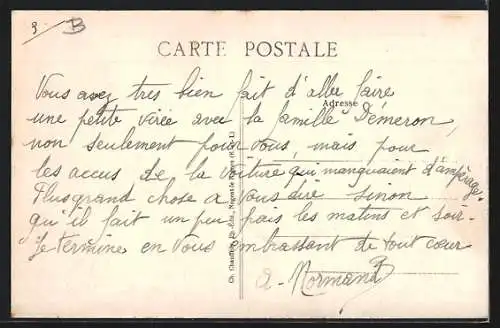 3 B
CARTE POSTALE
Adresse
Vous avez tres bien fait d'aller faire
une petite virée avec la famille Démeron,
non seulement pour vous, mais pour
les accus de la voiture qui manquaient d'ampérage.
Plus grand chose a vous dire sinon
qu'il fait un peu frais les matins et soir.
Je termine en vous embrassant de tout cœur
A. Normand